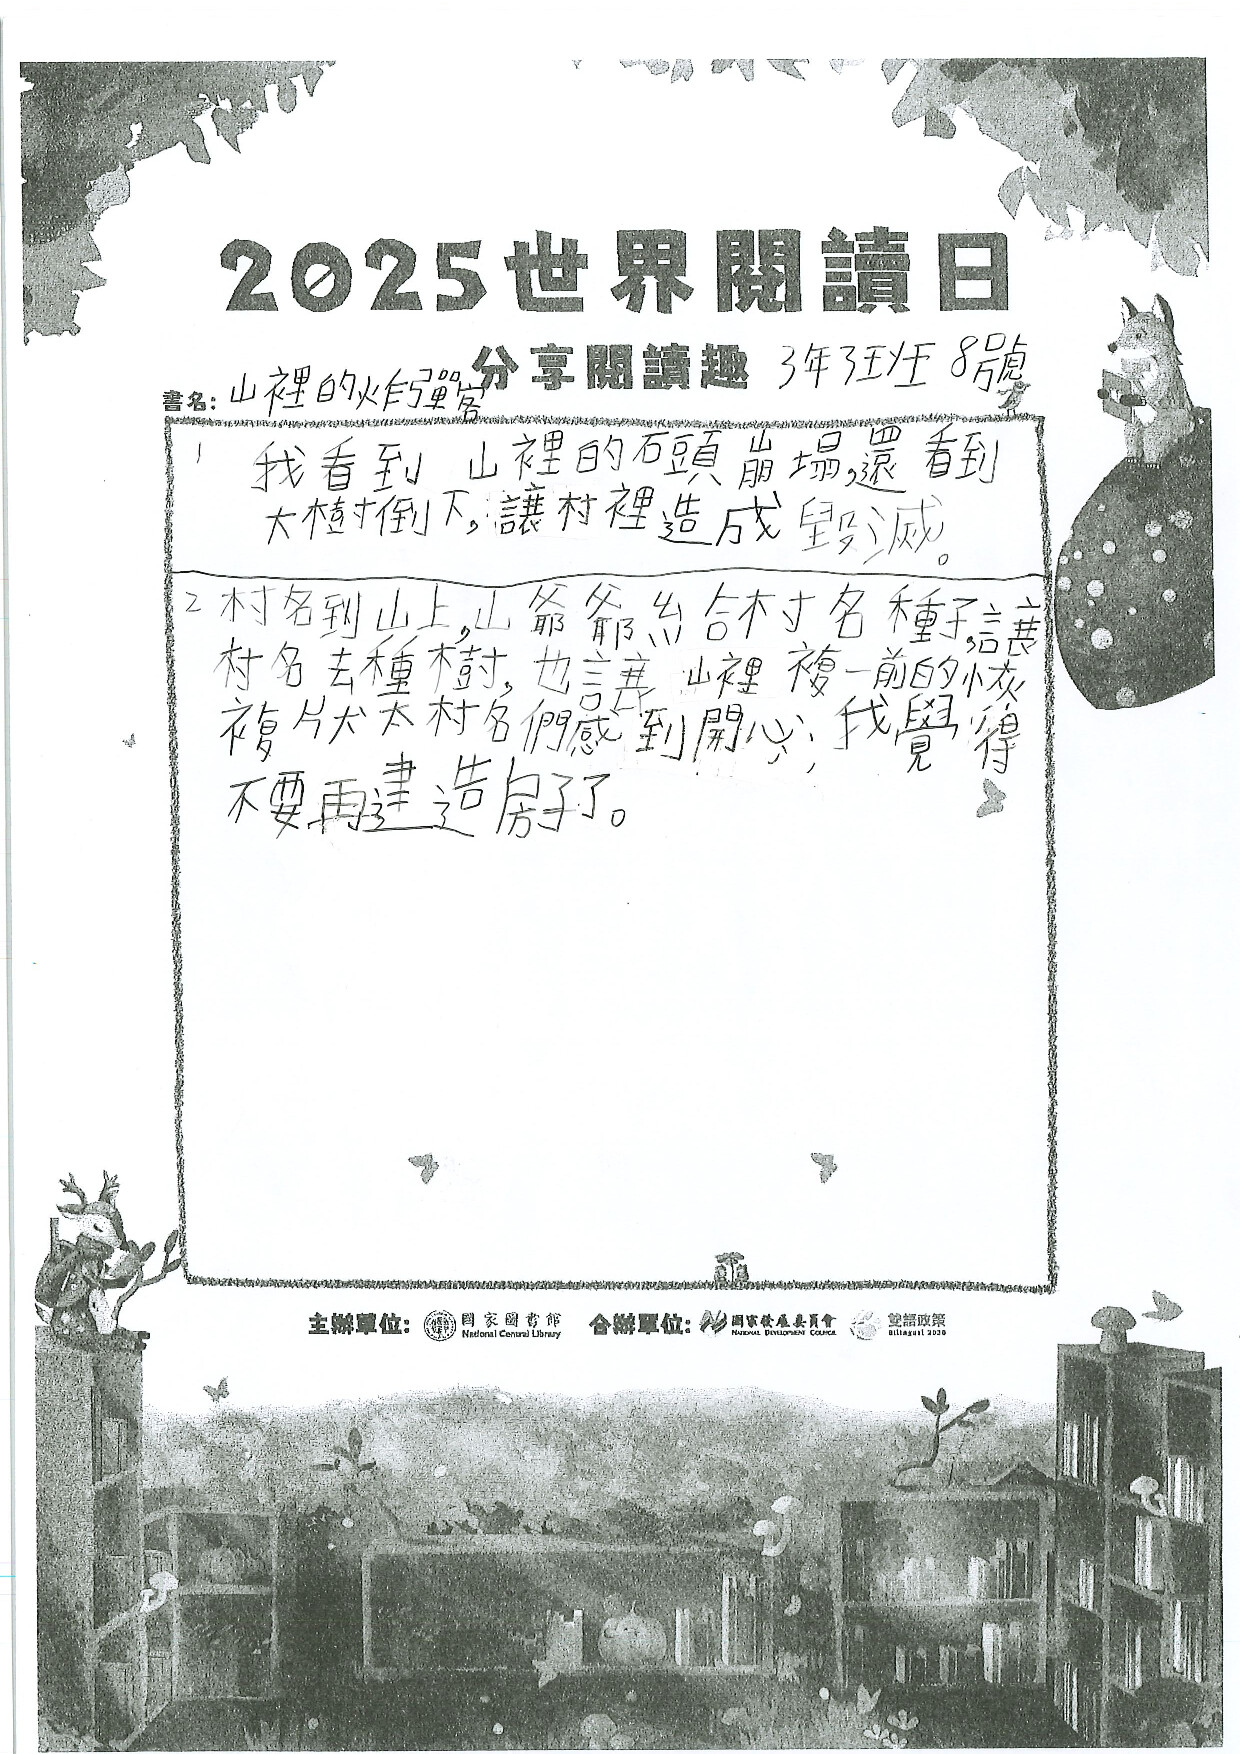 2025世界閱讀日
分享閱讀趣 3年3班 8號
書名: 山裡的炸彈客
1 我看到 山裡的石頭崩塌,還看到
大樹倒下,讓村裡造成毀滅。
2 村名到山上,山爺爺給村名種子,讓
村名去種樹,也讓山裡複一前的恢
複狀太村名們感到開心,我覺得
不要再建造房子了。
主辦單位: 國家圖書館 National Central Library 合辦單位: 國家發展委員會 NATIONAL DEVELOPMENT COUNCIL 雙語政策 Bilingual 2030